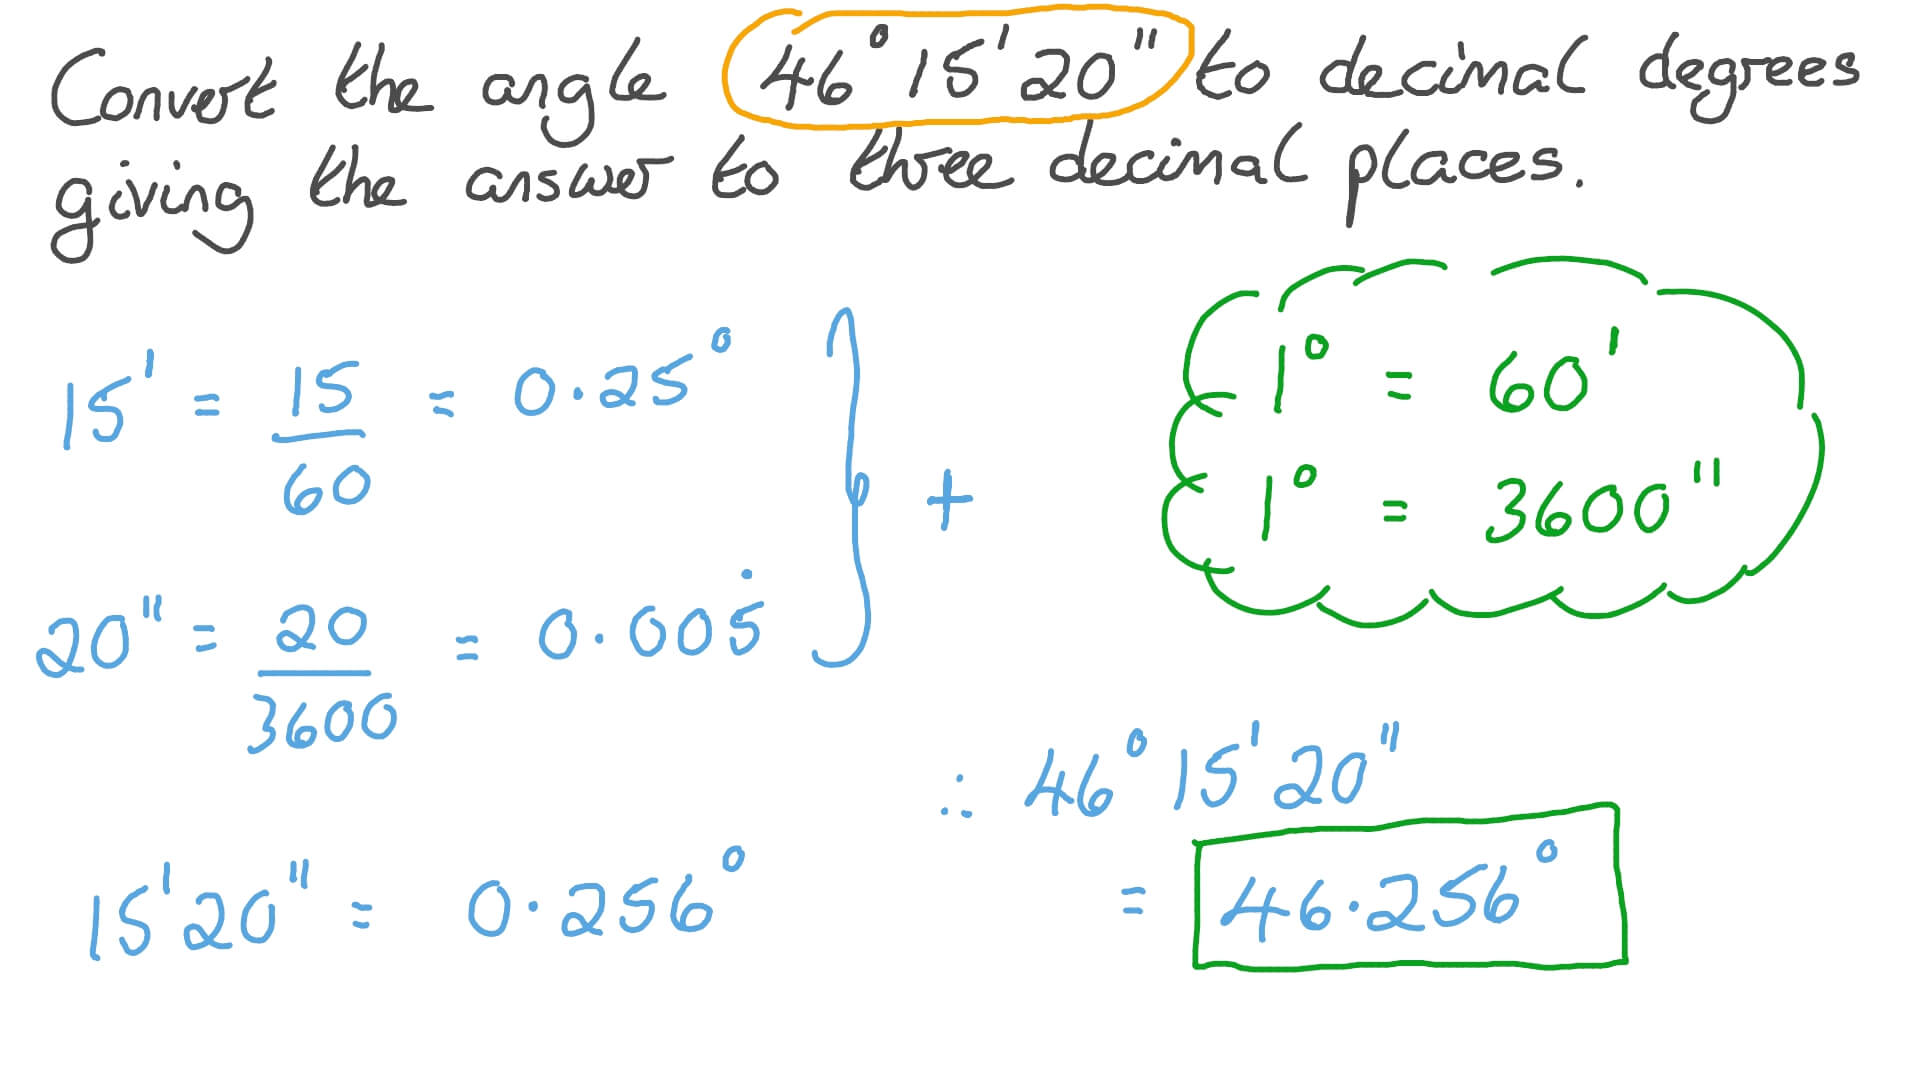 Convert the angle 46° 15' 20" to decimal degrees
giving the answer to three decimal places.
15' = 15/60 = 0.25°
20" = 20/3600 = 0.005̇
+
1° = 60'
1° = 3600"
15' 20" = 0.256°
∴ 46° 15' 20"
= 46.256°